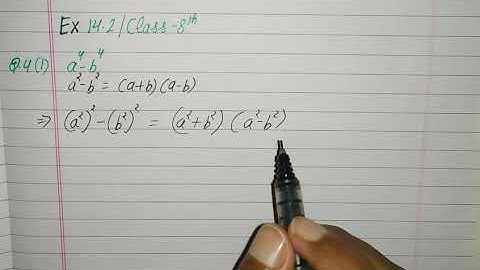 Ex 14.2/Class-8th
Q.4(1) a⁴-b⁴
a²-b² = (a+b)(a-b)
⇒ (a²)²-(b²)² = (a²+b²)(a²-b²)